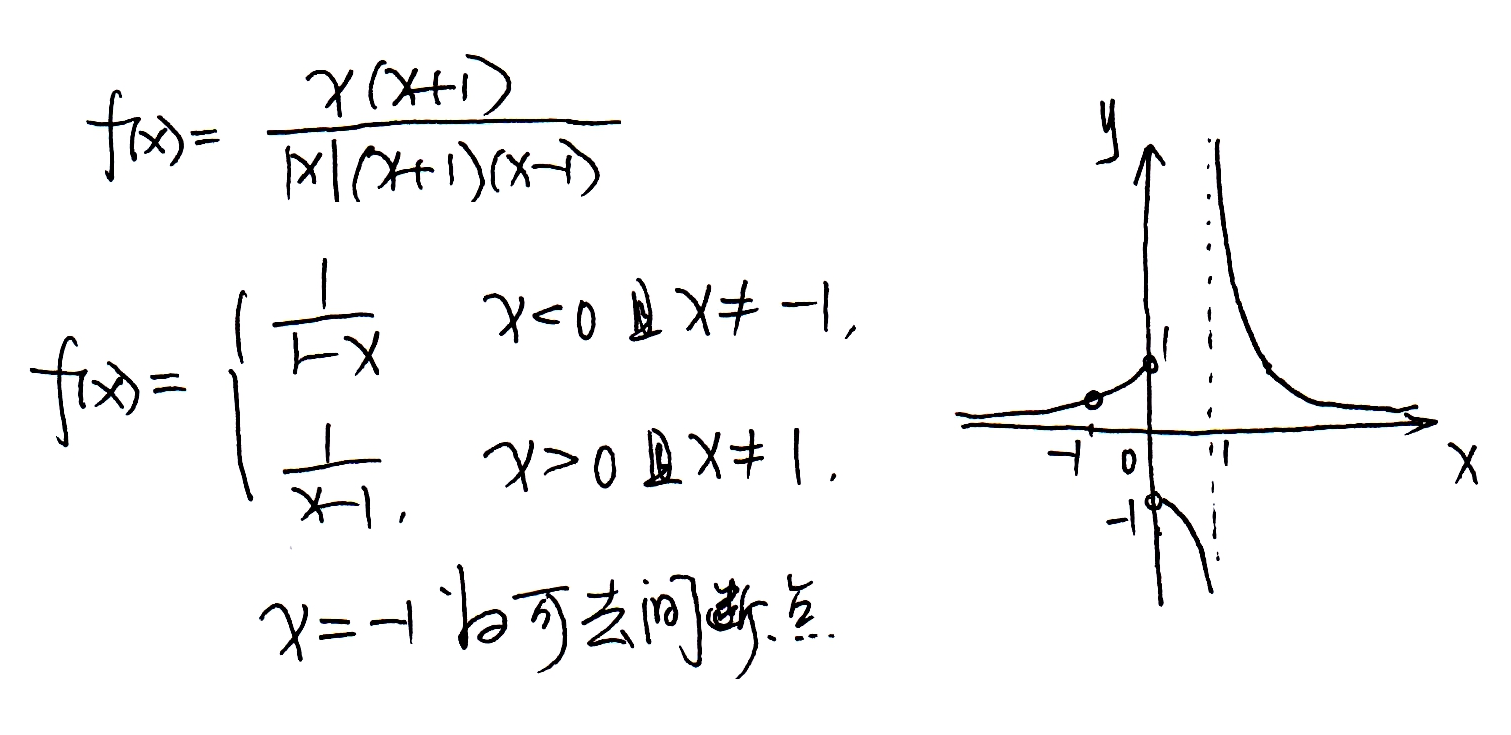 f(x) = x(x+1) / |x|(x+1)(x-1)
f(x) = { 1/(1-x) x<0 且 x≠-1,
1/(x-1), x>0 且 x≠1.
x=-1 为可去间断点.
y
1
-1 0 1 x
-1